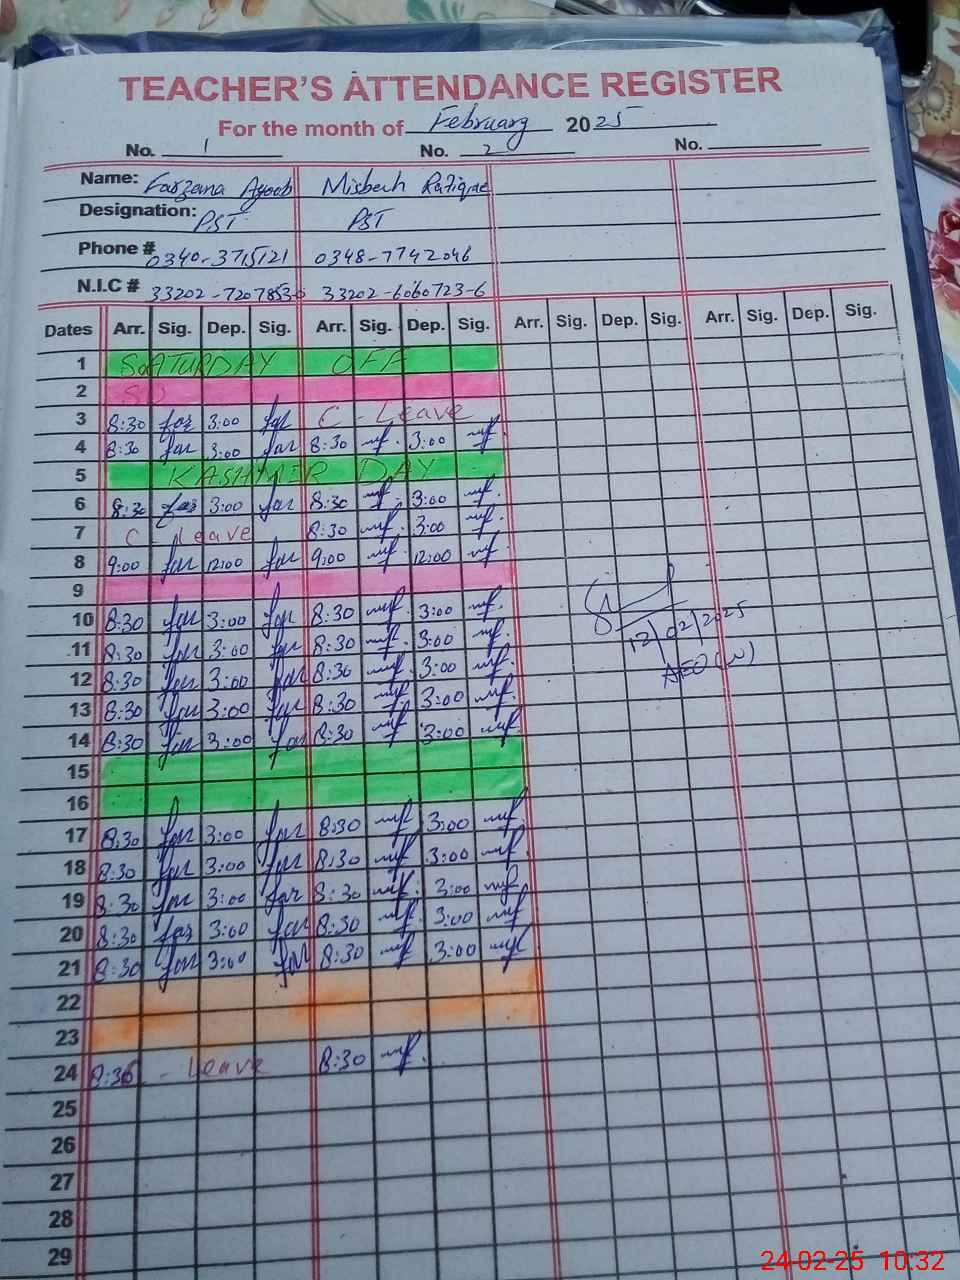 TEACHER'S ATTENDANCE REGISTER
For the month of February 2025
No. 1 No. 2 No.
Name: Farzana Ayoob Misbah Rafique
Designation: PST PST
Phone # 0340-3715121 0348-7742046
N.I.C # 33202-7207853-0 33202-6060723-6
Dates Arr. Sig. Dep. Sig. Arr. Sig. Dep. Sig. Arr. Sig. Dep. Sig. Arr. Sig. Dep. Sig.
1 SATURDAY OFF
2
3 8:30 far 3:00 far C - Leave
4 8:30 far 3:00 far 8:30 mf. 3:00 mf.
5 KASHMIR DAY
6 8:30 far 3:00 far 8:30 mf. 3:00 mf.
7 C - Leave 8:30 mf. 3:00 mf.
8 9:00 far 12:00 far 9:00 mf. 12:00 mf.
9
10 8:30 far 3:00 far 8:30 mf. 3:00 mf.
11 8:30 far 3:00 far 8:30 mf. 3:00 mf.
12 8:30 far 3:00 far 8:30 mf. 3:00 mf.
13 8:30 far 3:00 far 8:30 mf. 3:00 mf.
14 8:30 far 3:00 far 8:30 mf. 3:00 mf.
12/02/2025
AEO (W)
15
16
17 8:30 far 3:00 far 8:30 mf. 3:00 mf.
18 8:30 far 3:00 far 8:30 mf. 3:00 mf.
19 8:30 far 3:00 far 8:30 mf. 3:00 mf.
20 8:30 far 3:00 far 8:30 mf. 3:00 mf.
21 8:30 far 3:00 far 8:30 mf. 3:00 mf.
22
23
24 8:30 - Leave 8:30 mf.
25
26
27
28
29
24-02-25 10:32